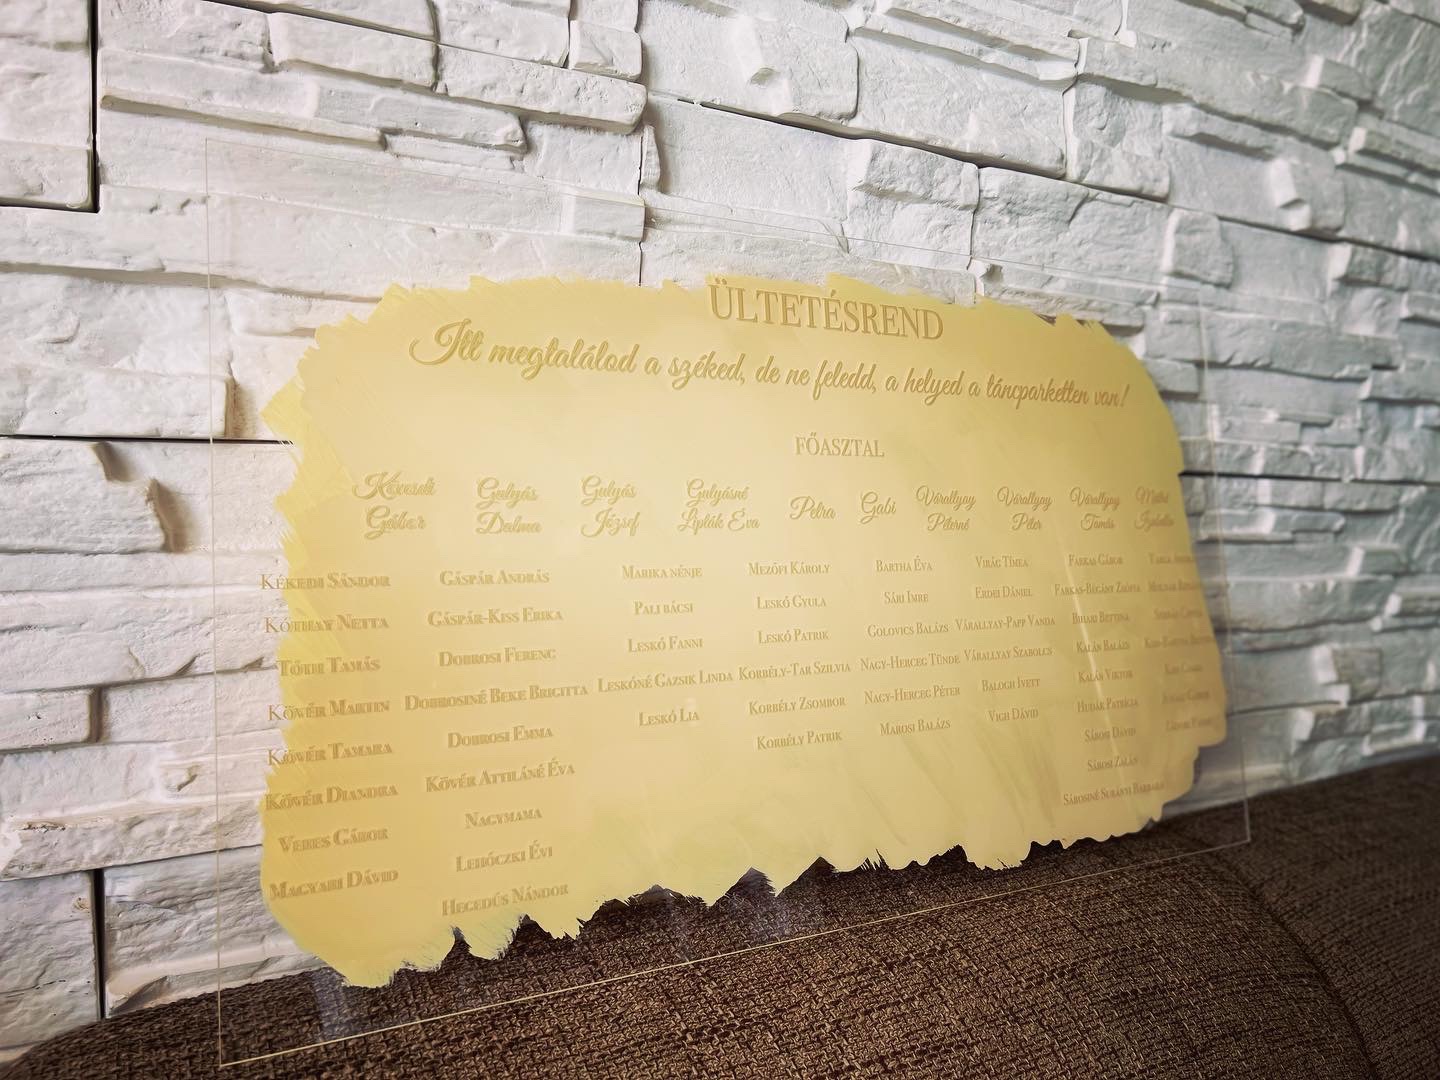 ÜLTETÉSREND
Itt megtalálod a széked, de ne feledd, a helyed a táncparketten van!
FŐASZTAL
Kövesdi
Gábor
Gulyás
Dalma
Gulyás
József
Gulyásné
Lipták Éva
Petra
Gabi
Várallyay
Péterné
Várallyay
Péter
Várallyay
Tamás
Izabella
Kékedi Sándor
Kóthay Netta
Tóth Tamás
Kövér Martin
Kövér Tamara
Kövér Diandra
Veres Gábor
Magyari Dávid
Gáspár András
Gáspár-Kiss Erika
Dobrosi Ferenc
Dobrosiné Beke Brigitta
Dobrosi Emma
Kövér Attiláné Éva
Nagymama
Lehóczki Évi
Hegedűs Nándor
Marika nénje
Pali bácsi
Leskó Fanni
Leskóné Gazsik Linda
Leskó Lia
Mezőfi Károly
Leskó Gyula
Leskó Patrik
Korbély-Tar Szilvia
Korbély Zsombor
Korbély Patrik
Bartha Éva
Sári Imre
Golovics Balázs
Nagy-Herceg Tünde
Nagy-Herceg Péter
Marosi Balázs
Virág Tímea
Erdei Dániel
Várallyay-Papp Vanda
Várallyay Szabolcs
Balogh Ivett
Vigh Dávid
Farkas Gábor
Farkas-Bégány Zsófia
Bihari Bettina
Kalán Balázs
Kalán Viktor
Hudák Patrícia
Sárosi Dávid
Sárosi Zalán
Sárosiné Surányi Barbara